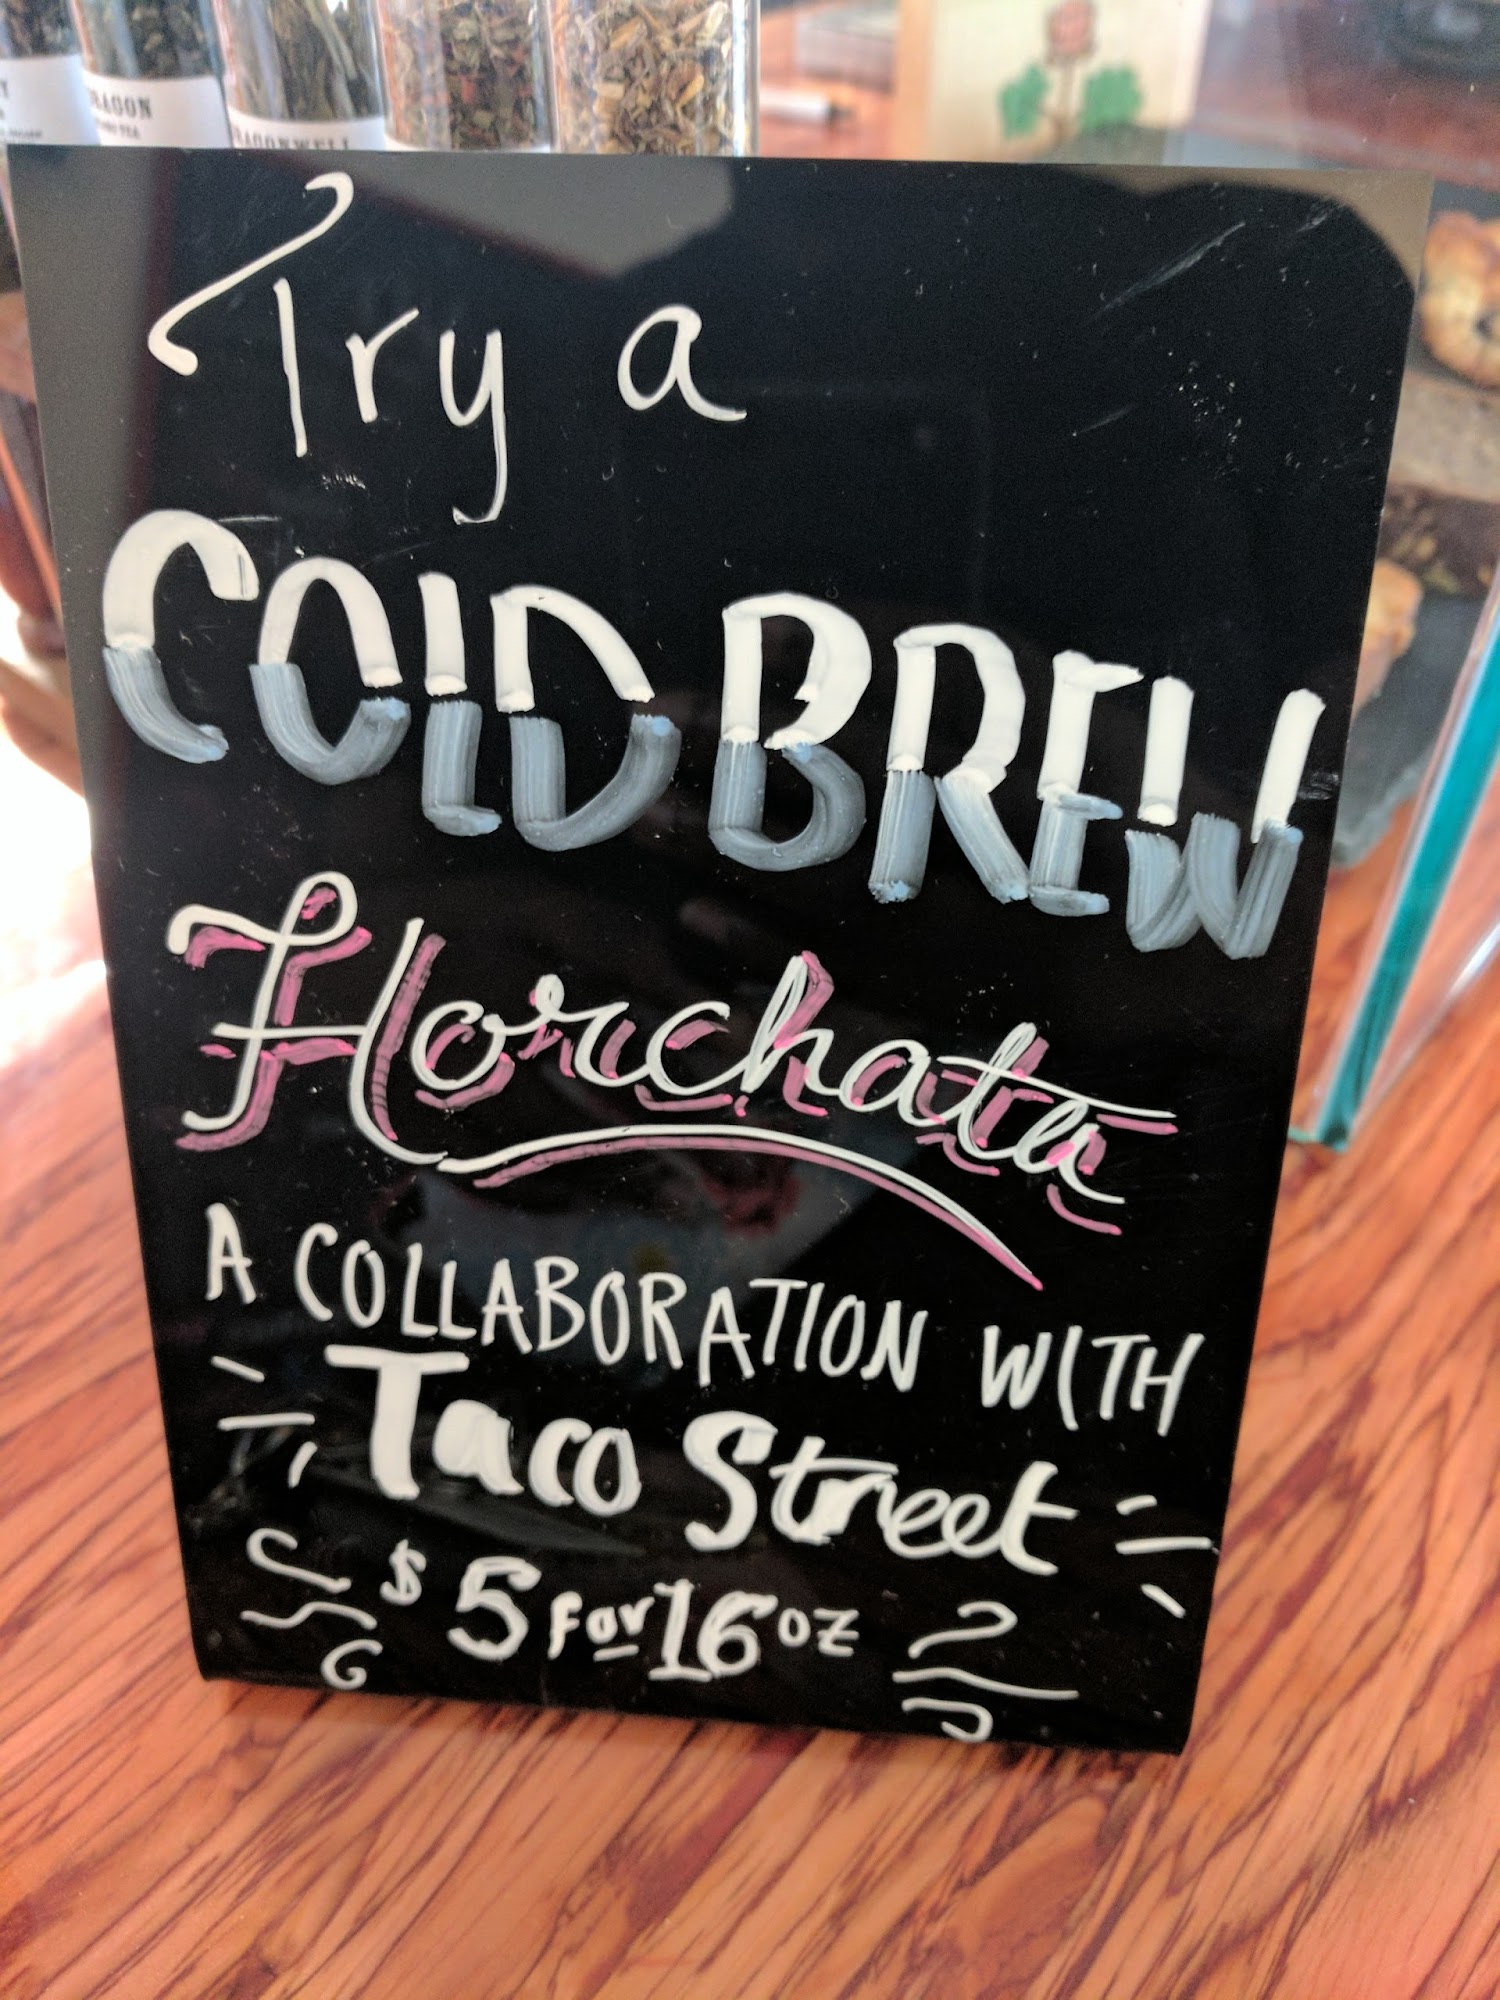 DRAGON
Try a
COLD BREW
Horchata
A COLLABORATION WITH
Taco Street
$5 for 16 oz